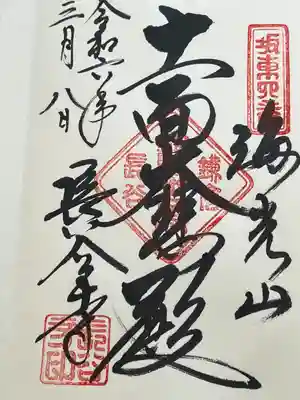 坂東四番
海光山
十一面大悲殿
鎌倉
長谷
長谷寺
令和六年
三月八日